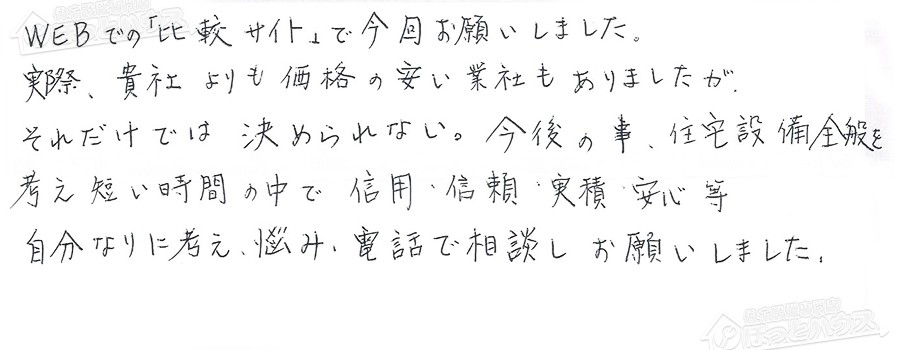 WEBでの「比較サイト」で今回お願いしました。
実際、貴社よりも価格の安い業社もありましたが、
それだけでは決められない。今後の事、住宅設備全般を
考え短い時間の中で信用・信頼・実積・安心等
自分なりに考え、悩み、電話で相談しお願いしました。
住宅設備専門店
ほっとハウス